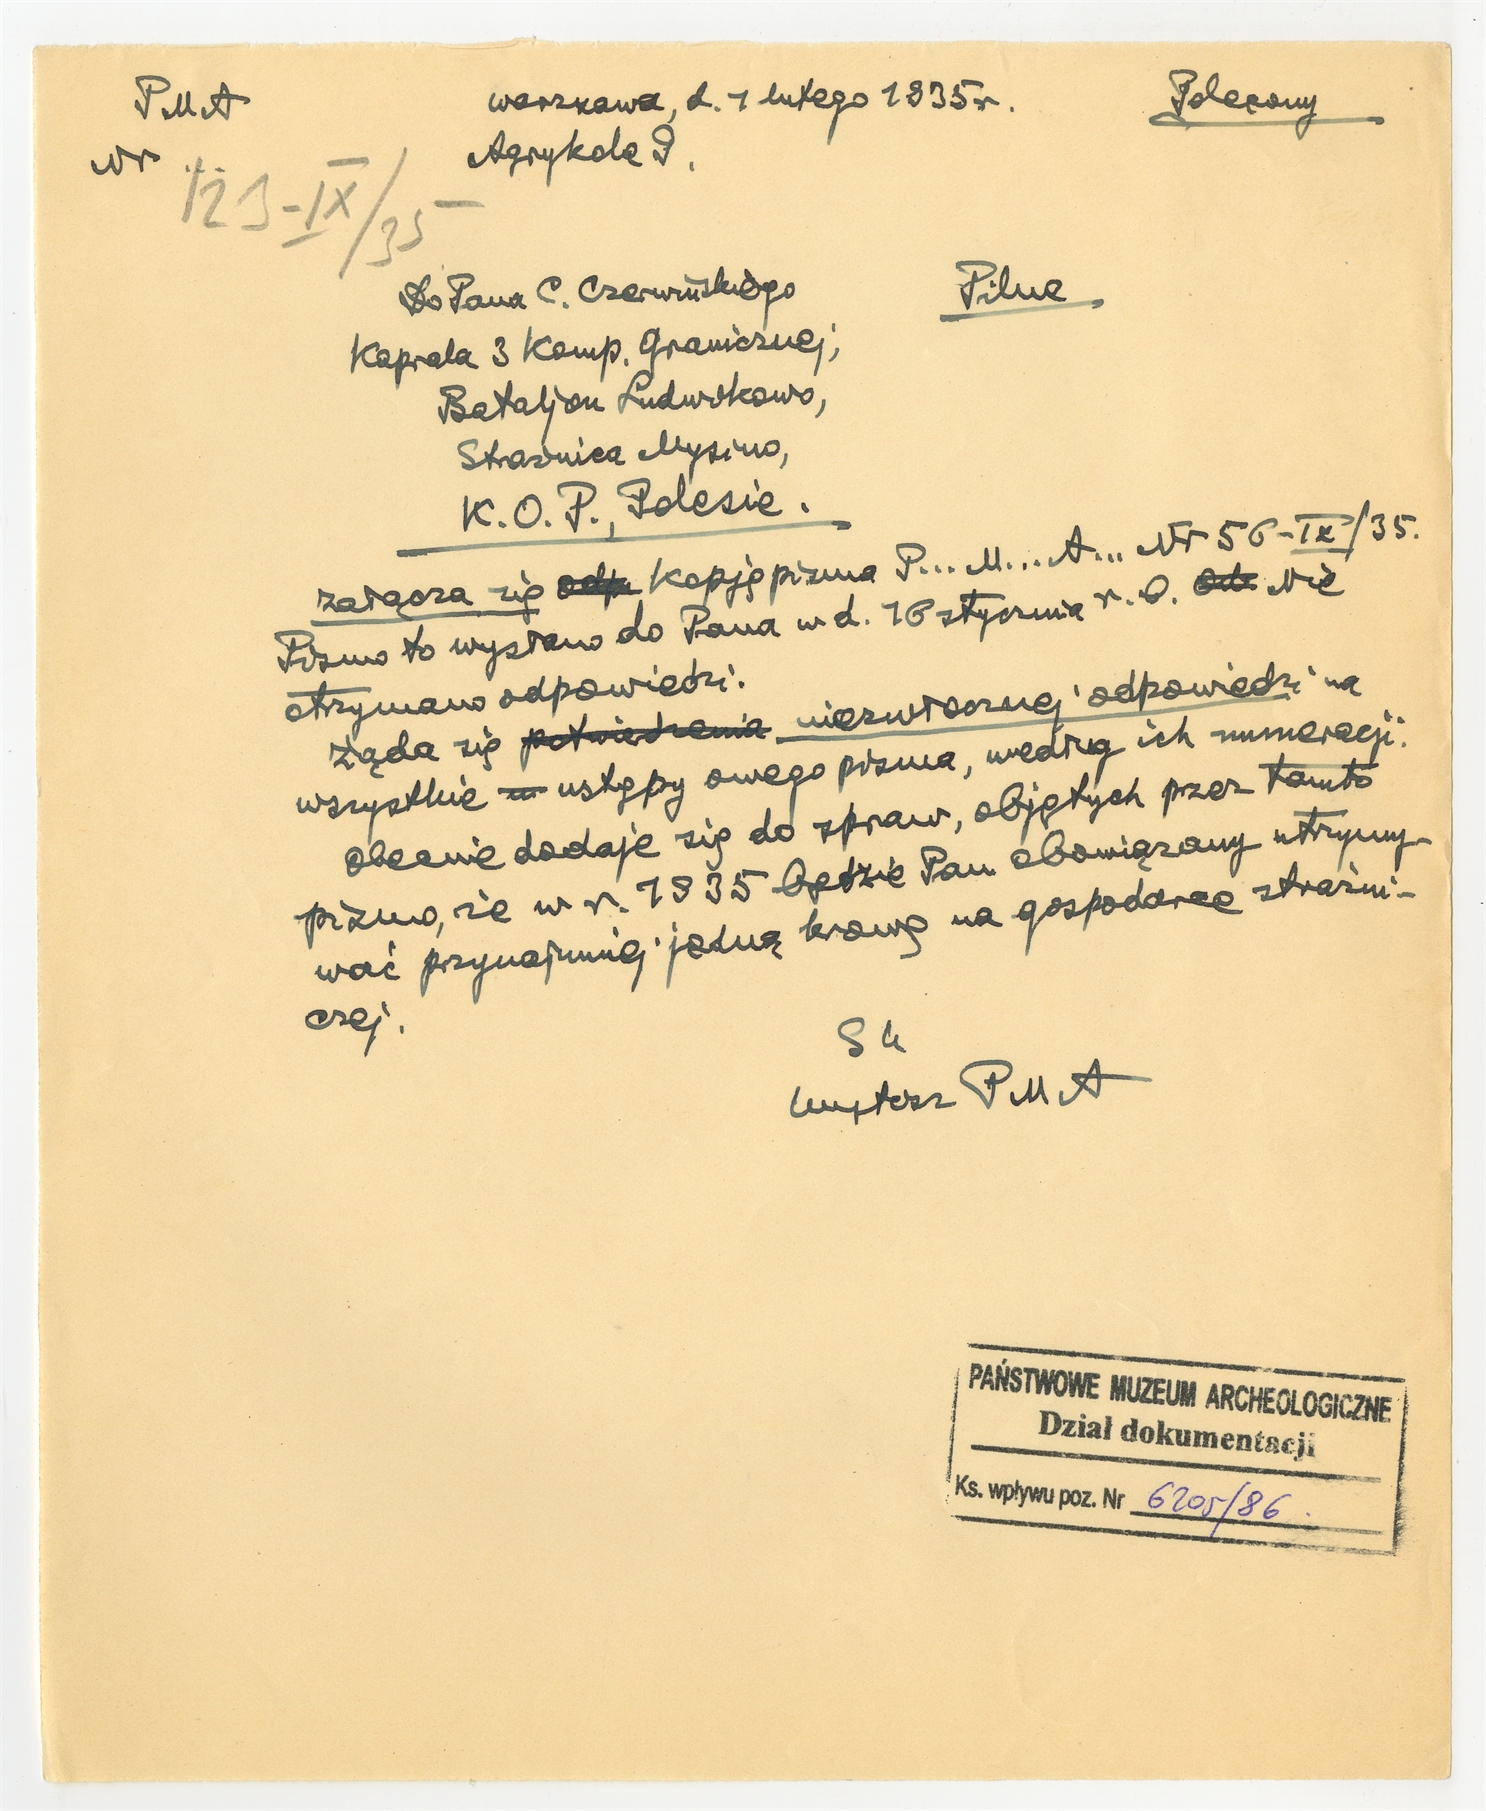 PMA
Warszawa, d. 1 lutego 1935 r.
Polecony
Nr
Agrykola 9.
123-IX/35
Do Pana C. Czerwińskiego
Pilne
Kaprala 3 Komp. Granicznej,
Bataljon Ludwikowo,
Strażnica Mysino,
K.O.P., Polesie.
załącza się odp kopję pisma P... M... A... Nr 56-IX/35.
Pismo to wysłano do Pana w d. 16 stycznia r. b. Odp Nie
otrzymano odpowiedzi.
Żąda się potwierdzenia niezwłocznej odpowiedzi na
wszystkie ustępy owego pisma, według ich numeracji.
Obecnie dodaje się do spraw, objętych przez tamto
pismo, że w r. 1935 będzie Pan obowiązany utrzymy-
wać przynajmniej jedną krowę na gospodarce strażni-
czej.
PMA
PAŃSTWOWE MUZEUM ARCHEOLOGICZNE
Dział dokumentacji
Ks. wpływu poz. Nr 6205/86.